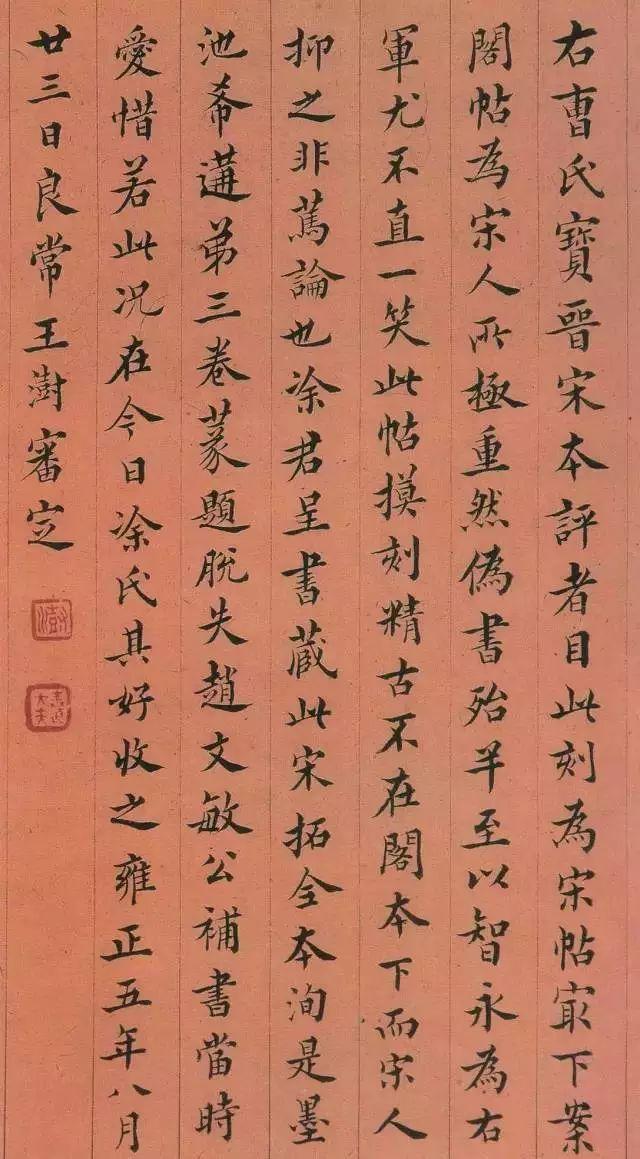 右曺氏寶晉宋本評者目此刻為宋帖㝡下案
閣帖為宋人所極重然偽書殆半至以智永為右
軍尤不直一笑此帖摸刻精古不在閣本下而宋人
抑之非篤論也凃君呈書蔵此宋拓全本洵是墨
池希遘弟三卷篆題脫失趙文敏公補書當時
愛惜若此况在今日凃氏其好收之雍正五年八月
廿三日良常王澍審定
澍